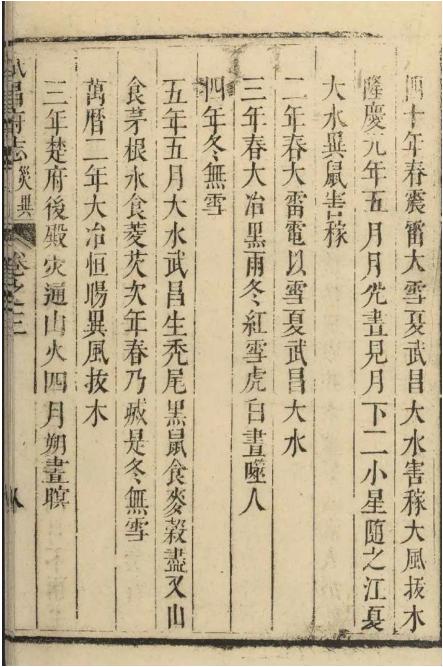 四十年春震雷大雪夏武昌大水害稼大風拔木
隆慶元年五月月光晝見月下二小星隨之江夏
大水異鼠害稼
二年春大雷電以雪夏武昌大水
三年春大冶黑雨冬紅雪虎白晝噬人
四年冬無雪
五年五月大水武昌生禿尾黑鼠食麥穀盡又山
食茅根水食菱芡次年春乃滅是冬無雪
萬曆二年大冶恒暘異風拔木
三年楚府後殿灾通山火四月朔晝暝
武昌府志 災異 卷之三